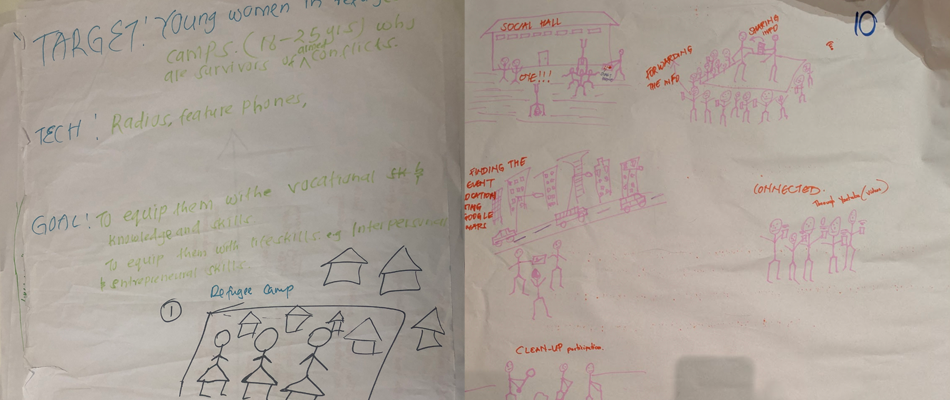 TARGET: Young women in refugee
camps. (18-25 yrs) who
are survivors of armed conflicts.
TECH: Radios, feature phones,
GOAL: To equip them withe vocational
knowledge and skills
To equip them with lifeskills. eg Interpersonal
& entrepreneural skills.
Refugee Camp
1
10
SOCIAL HALL
SHARING
INFO
FORWARDING
THE INFO
?
FINDING THE
EVENT
LOCATION
USING
GOOGLE
MAPS
CONNECTED:
Through Youtube (video)
CLEAN-UP participation.